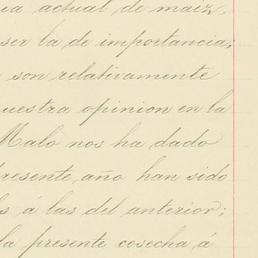 va actual de maiz,
ser la de importancia;
son relativamente
uestra opinion en la
Malo nos ha dado
resente año han sido
s á las del anterior;
la presente cosecha á